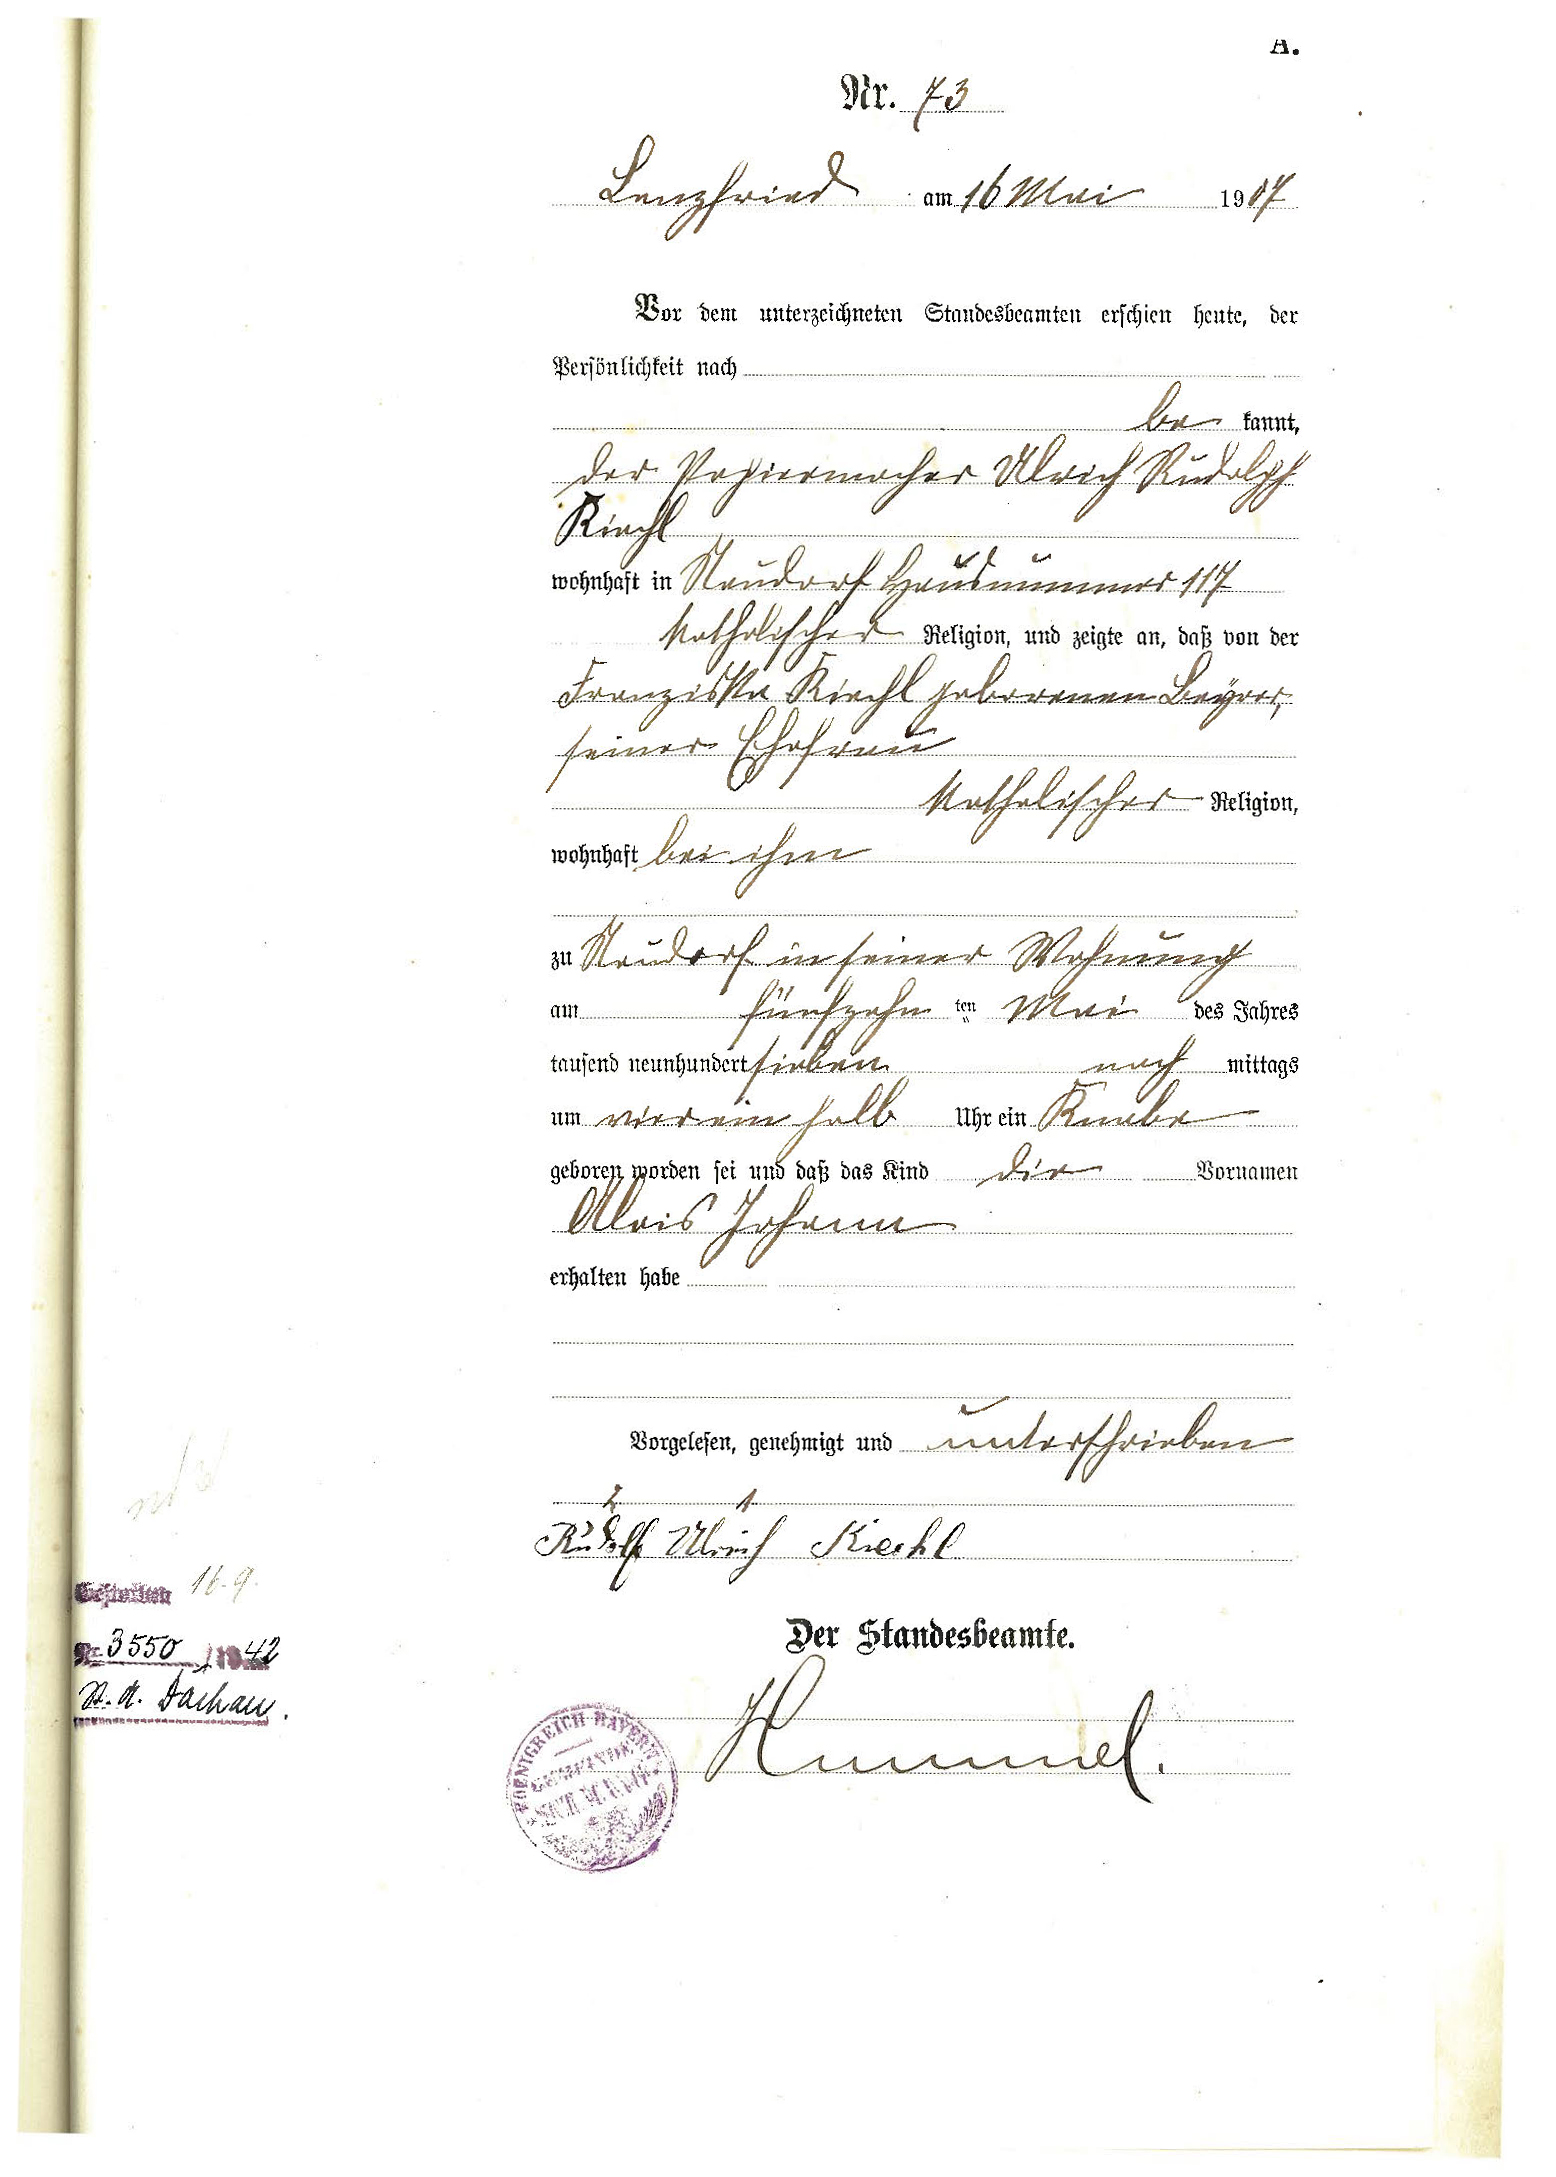 A.
Nr. 73
Lenzfried am 16 Mai 1907
Vor dem unterzeichneten Standesbeamten erschien heute, der
Persönlichkeit nach
be kannt,
der Papiermacher Ulrich Rudolph
Kiechl
wohnhaft in Neudorf Hausnummer 117
katholischer Religion, und zeigte an, daß von der
Franziska Kiechl geborenen Beyrer,
seiner Ehefrau
katholischer Religion,
wohnhaft bei ihm
zu Neudorf in seiner Wohnung
am fünfzehn ten Mai des Jahres
tausend neunhundert sieben nach mittags
um vier ein halb Uhr ein Knabe
geboren worden sei und daß das Kind die Vornamen
Alois Johann
erhalten habe
Vorgelesen, genehmigt und unterschrieben
2 1
Rudolf Ulrich Kiechl
Gestorben 16.9.
Nr. 3550 / 1942
St. A. Dachau.
Der Standesbeamte.
Hummel.
KOENIGREICH BAYERN
GEMEINDE